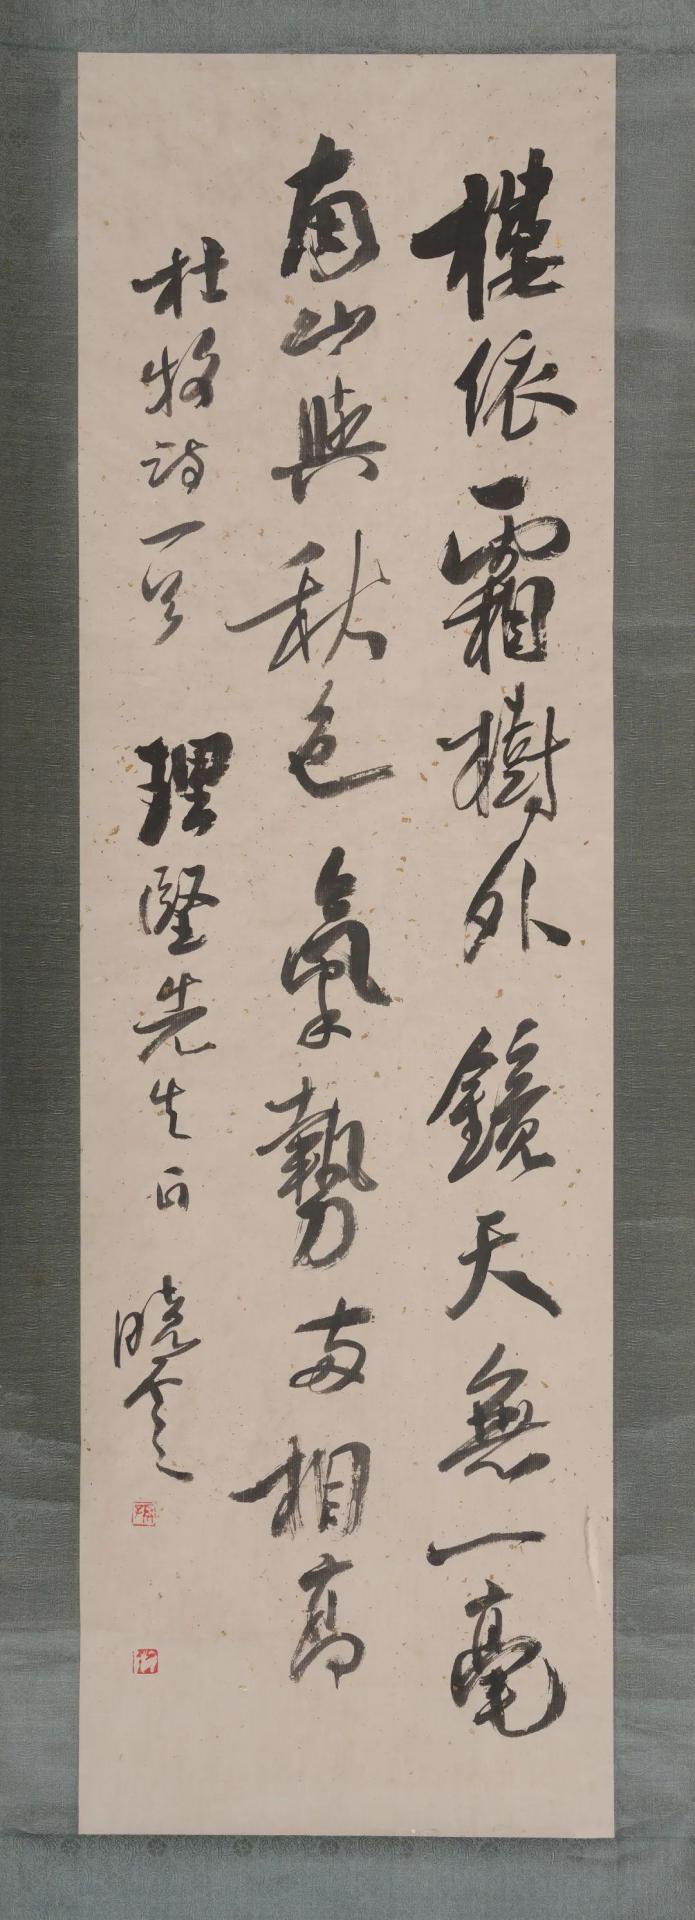 樓依霜樹外鏡天無一毫
南山與秋色氣勢兩相高
杜牧詩一首 理堅先生正 曉雲